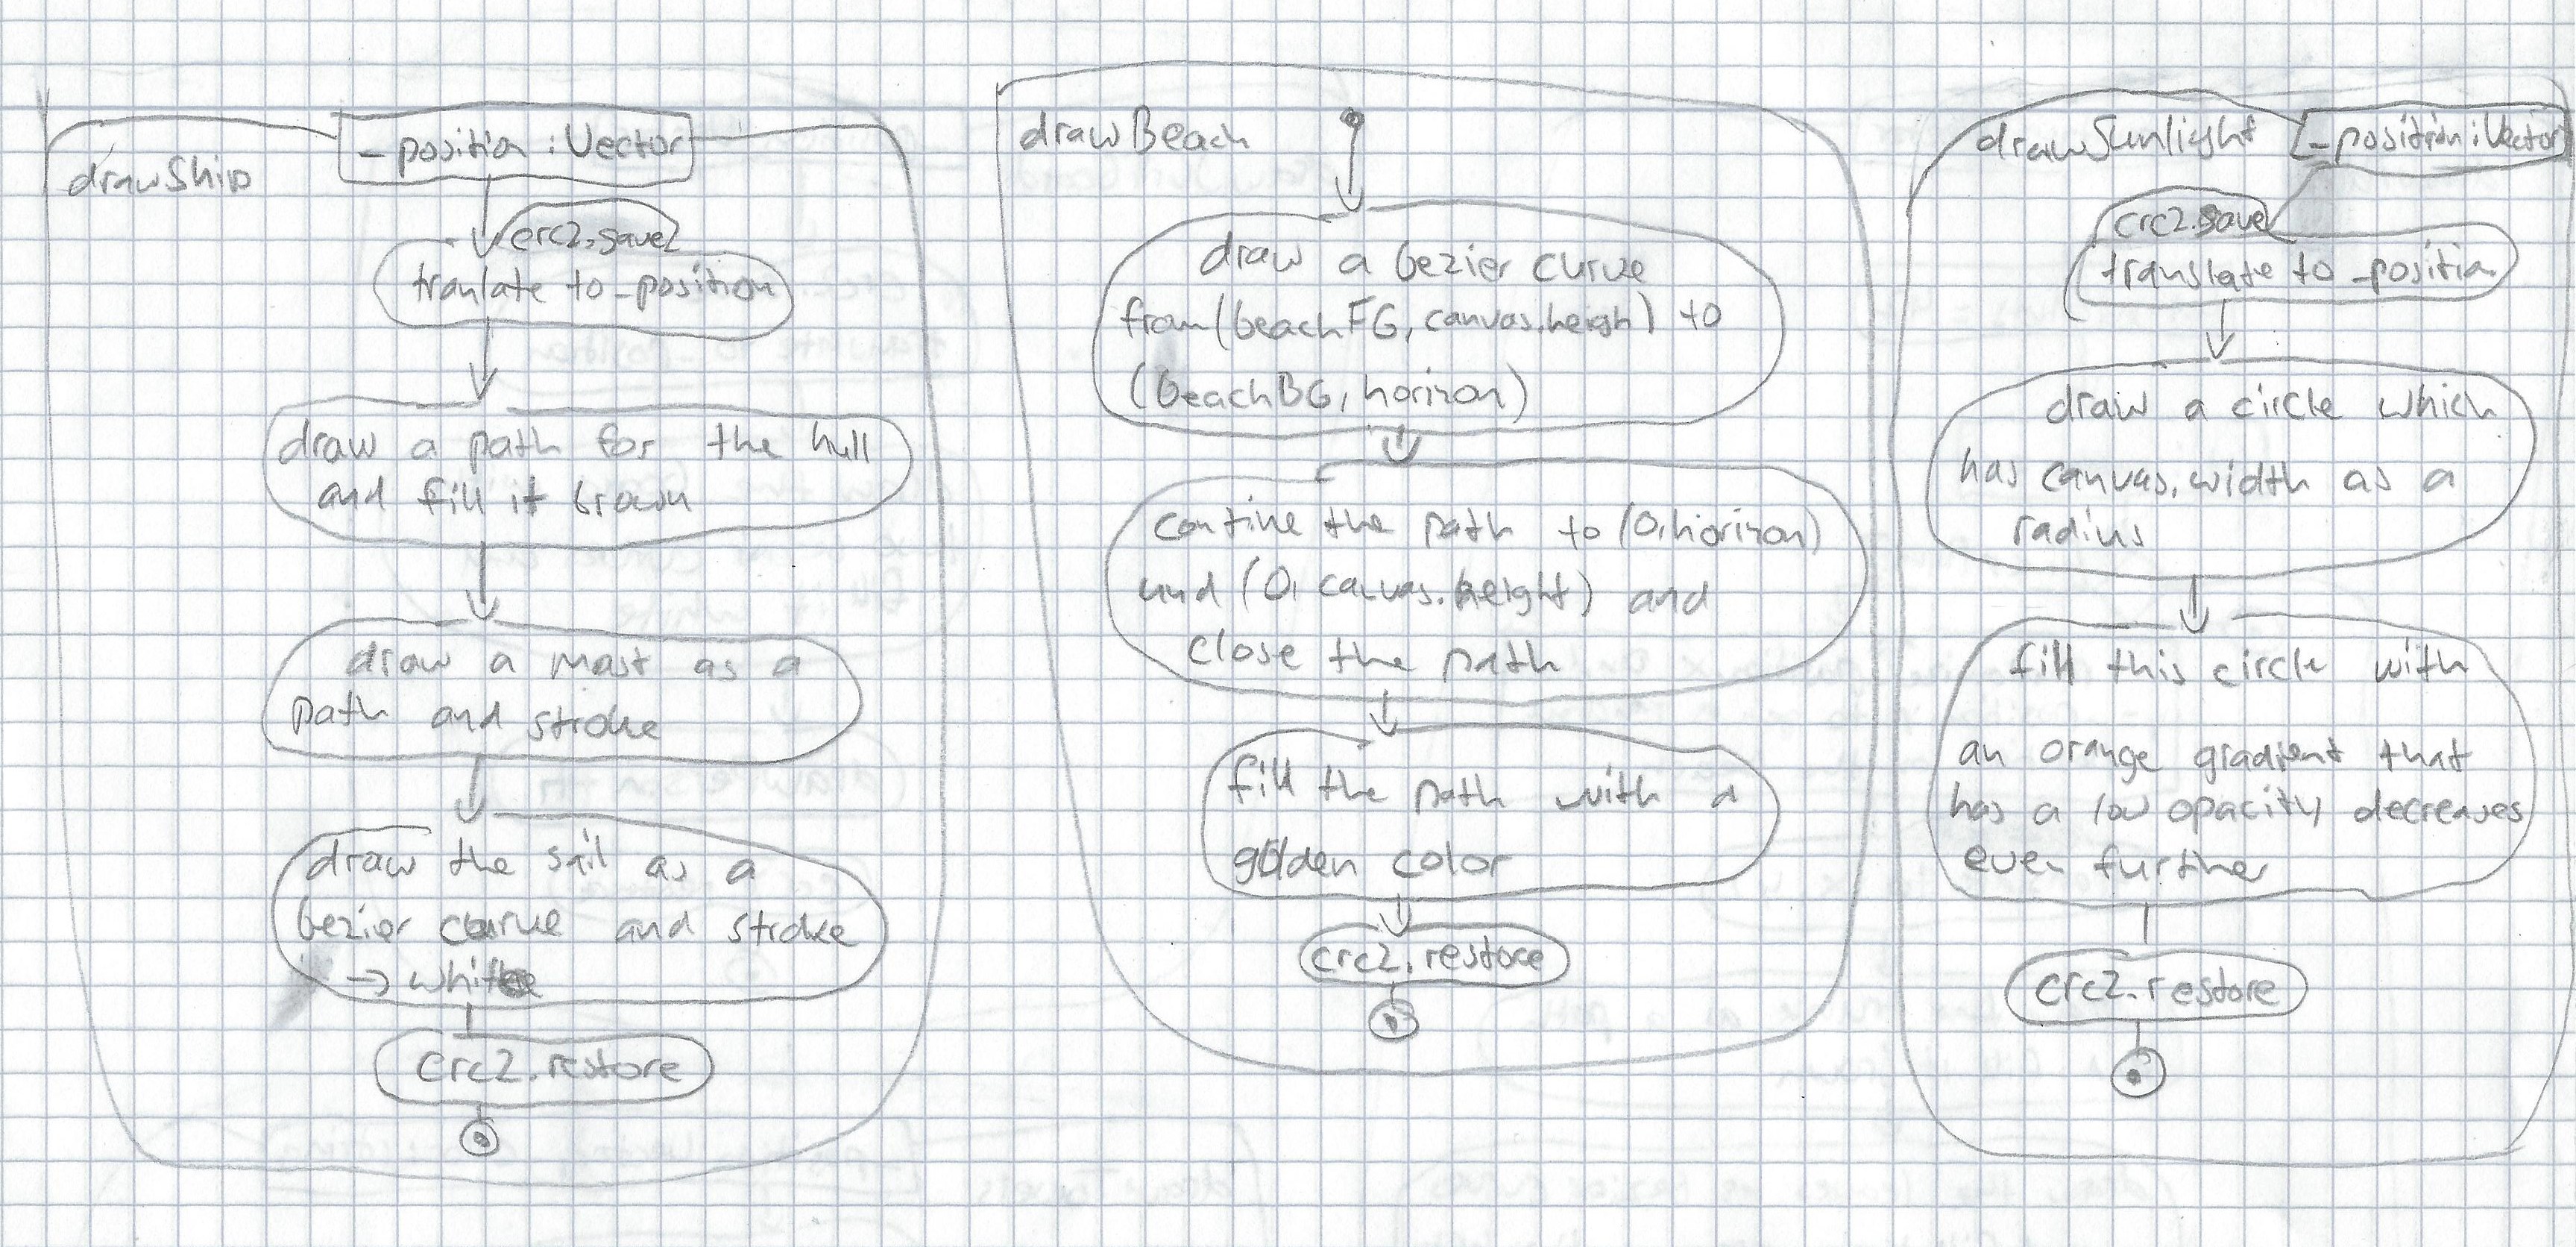 drawShip
_position : Vector
crc2.save
tranlate to _position
draw a path for the hull
and fill it brown
draw a mast as a
path and stroke
draw the sail as a
bezier curve and stroke
-> white
crc2.restore
drawBeach
draw a bezier curve
from (beachFG, canvas.heigh) to
(beachBG, horizon)
contine the path to (0, horizon)
und (0, canvas.height) and
close the path
fill the path with a
golden color
crc2.restore
drawSunlight
_position : Vector
crc2.save
translate to _position
draw a circle which
has canvas.width as a
radius
fill this circle with
an orange gradient that
has a low opacity decreases
even further
crc2.restore